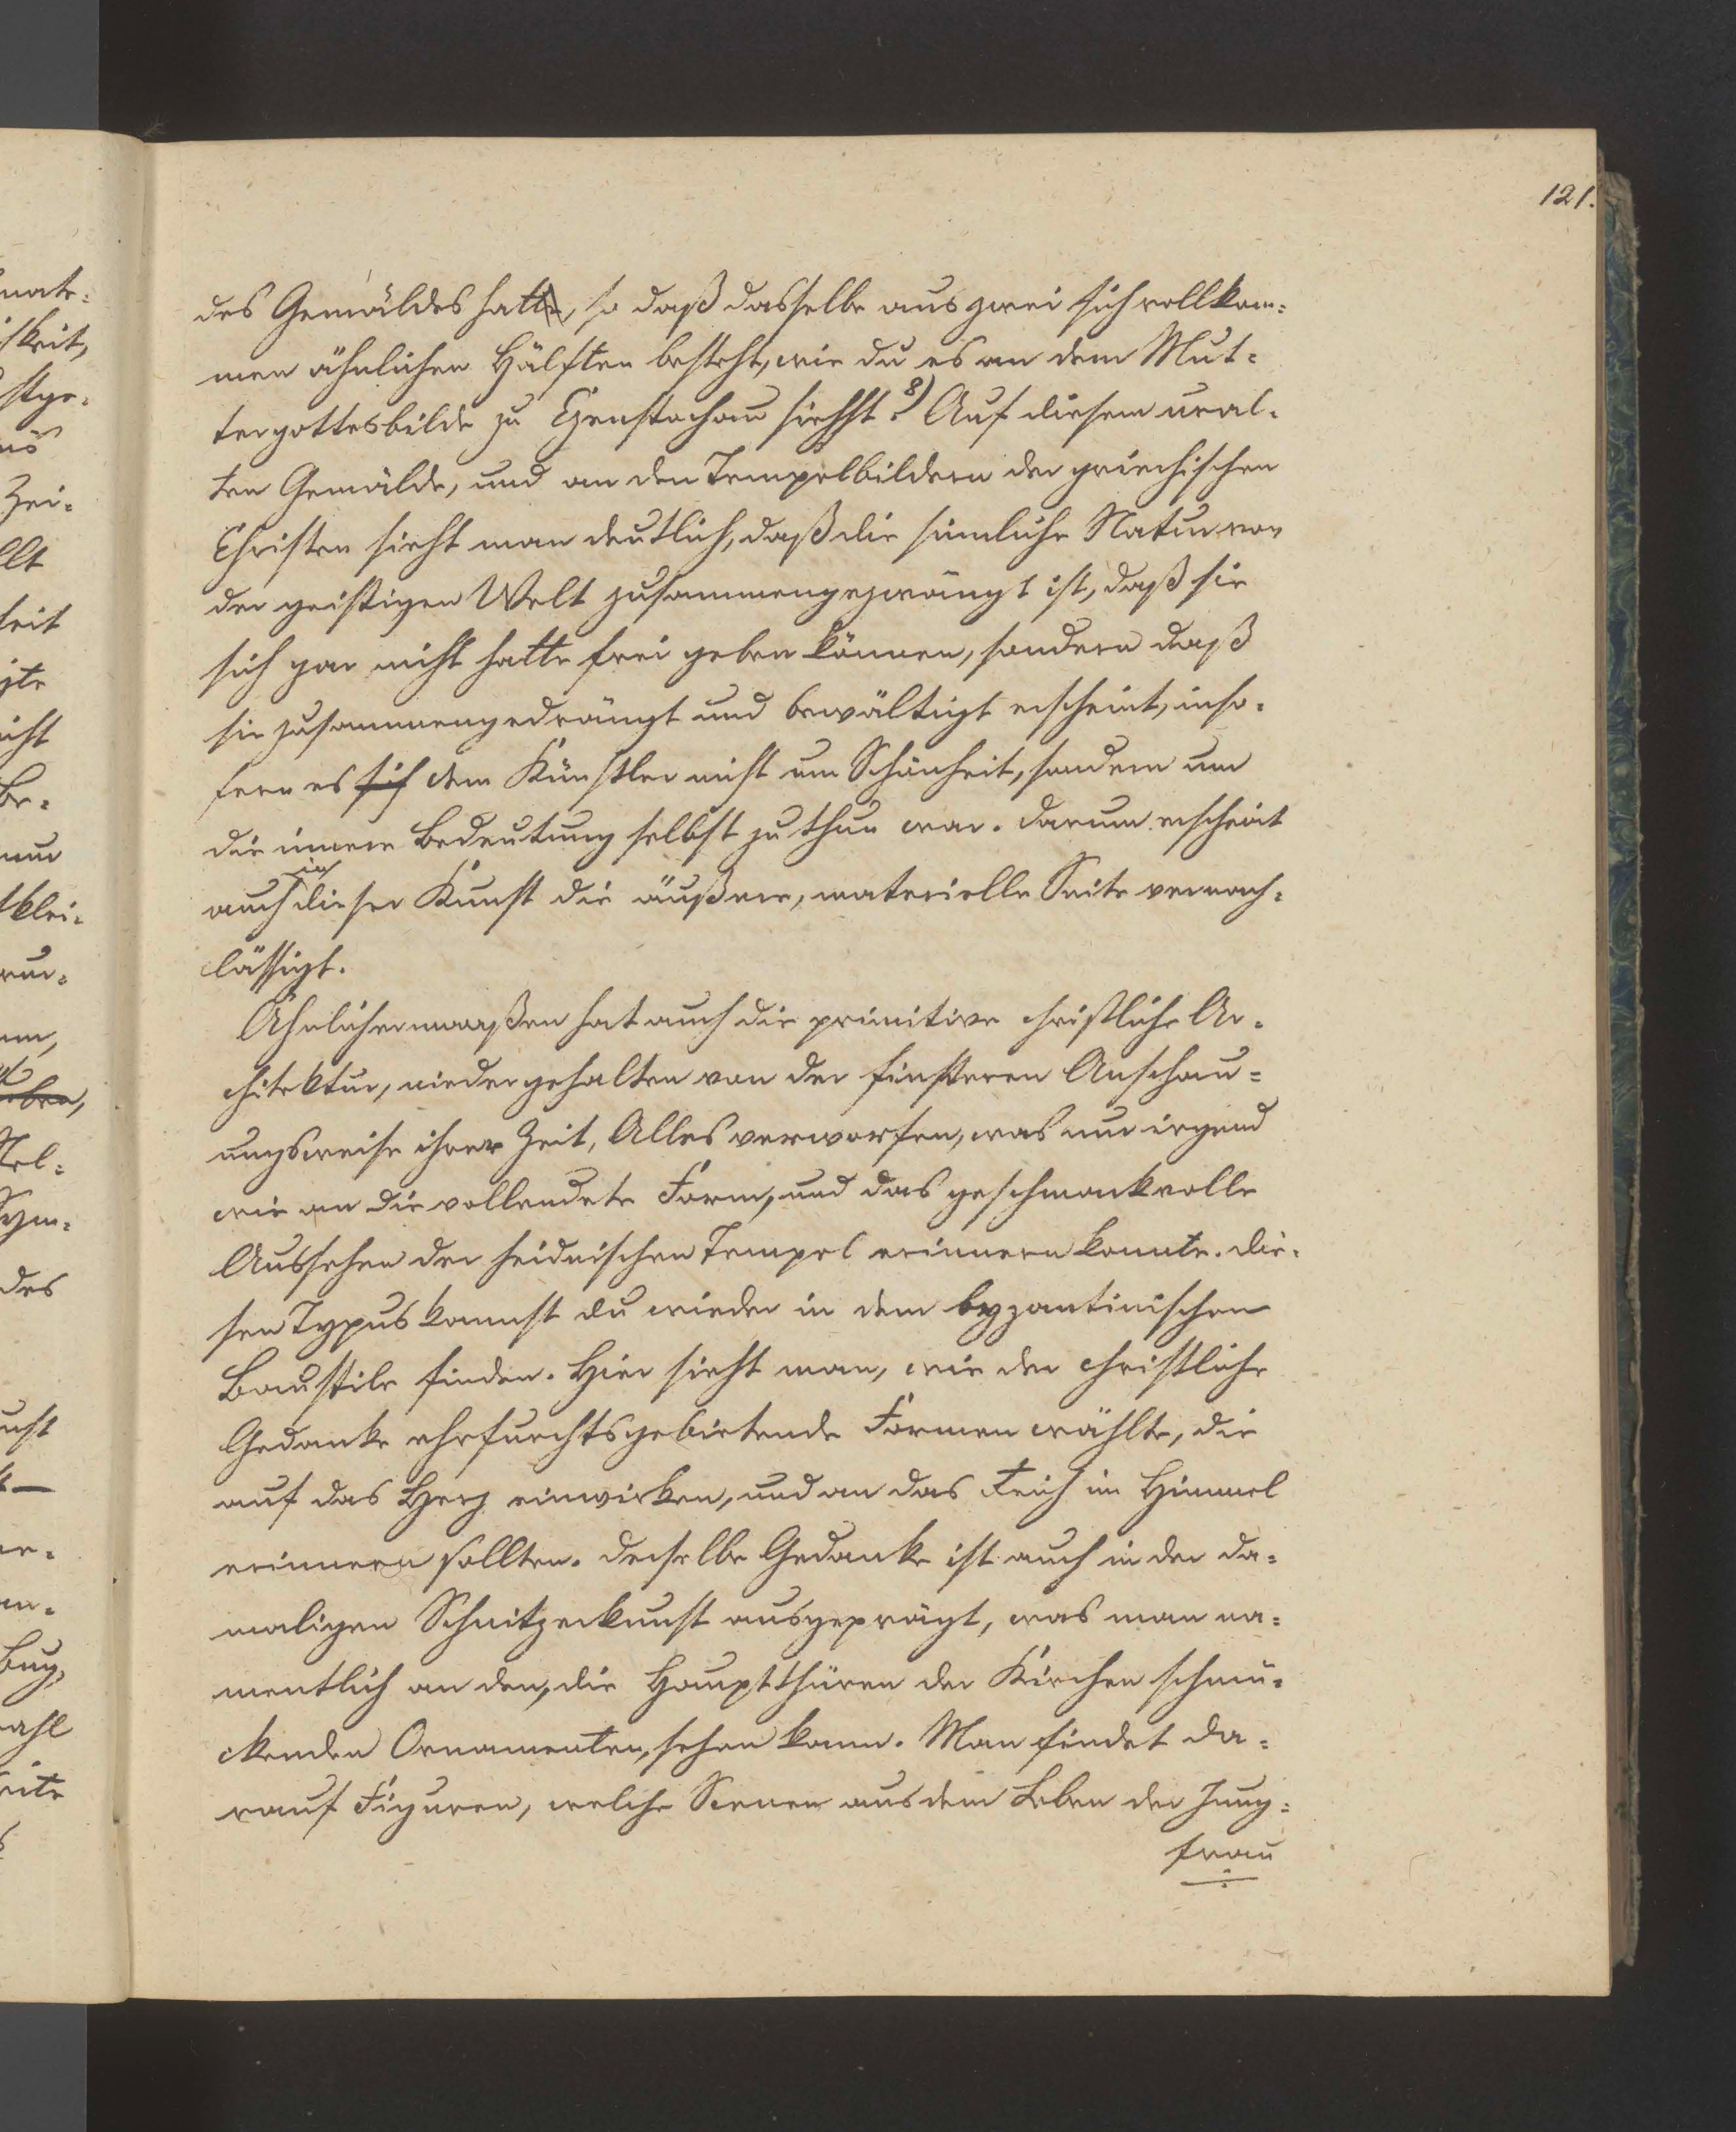 121.
des Gemäldes hatte, so daß dasselbe aus zwei sich vollkom=
men ähnlichen Hälften besteht, wie du es an dem Mut=
tergottesbilde zu Czenstochau siehst? 8) Auf diesem ural=
ten Gemälde, und an den Tempelbildern der griechischen
Christen sieht man deutlich, daß die sinnliche Natur von
der geistigen Welt zusammengezwängt ist, daß sie
sich gar nicht hatte frei geben können, sondern daß
sie zusammengedrängt und bewältigt erscheint, inso=
fern es sich dem Künstler nicht um Schönheit, sondern um
die innere Bedeutung selbst zu thun war. Darum erscheint
auch in dieser Kunst die äußere, materielle Seite vernach=
lässigt.
Ähnlichermaaßen hat auch die primitive christliche Ar=
chitektur, niedergehalten von der finsteren Anschau=
ungsweise ihrer Zeit, Alles verworfen, was nur irgend
wie an die vollendete Form, und das geschmackvolle
Aussehen der heidnischen Tempel erinnern konnte. Die=
sen Typus kannst du wieder in dem byzantinischen
Baustile finden. Hier sieht man, wie der christliche
Gedanke ehrfurchtsgebietende Formen wählte, die
auf das Herz einwirken, und an das Reich im Himmel
erinnern sollten. Derselbe Gedanke ist auch in der da=
maligen Schnitzerkunst ausgeprägt, was man na=
mentlich an den, die Hauptthüren der Kirchen schmü=
ckenden Ornamenten, sehen kann. Man findet da=
rauf Figuren, welche Scenen aus dem Leben der Jung=
frau